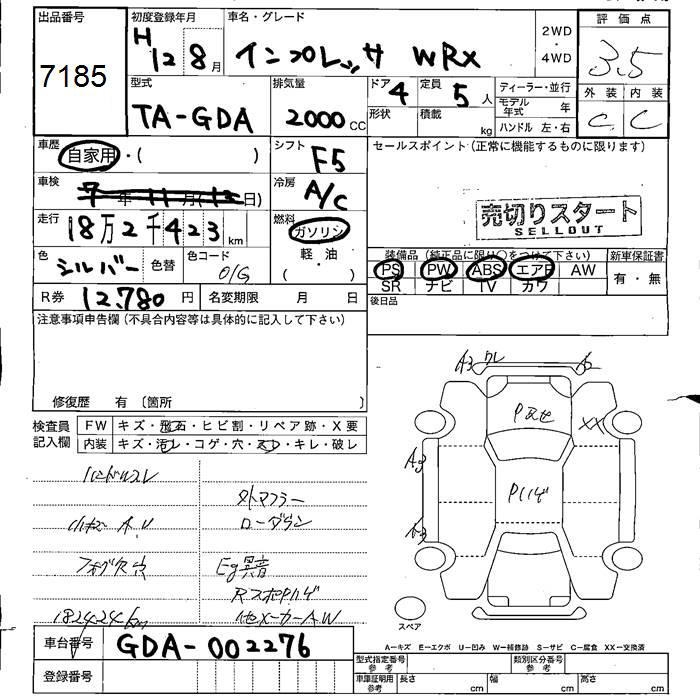 出品番号 初度登録年月 車名・グレード 2WD ・ 4WD 評価点
7185 H 12 8月 インプレッサ WRX 3.5
型式 排気量 ドア 4 定員 5人 ディーラー・並行 外装 内装
TA-GDA 2000CC 形状 積載 kg モデル年式 年 C C
ハンドル 左・右
車歴 自家用・( ) シフト F5 セールスポイント(正常に機能するものに限ります)
車検 7年11月(12日) 冷房 A/C
売切りスタート
SELLOUT
走行 18万2千423km 燃料 ガソリン
(軽・油)
色 シルバー 色替 色コード O/G
装備品(純正品に限り○をつけて下さい) 新車保証書
PS PW ABS エアB AW 有・無
SR ナビ TV カワ
R券 12,780円 名変期限 月 日 後日品
注意事項申告欄(不具合内容等は具体的に記入して下さい)
修復歴 有 〔箇所 〕
検査員記入欄 FW キズ・飛石・ヒビ割・リペア跡・X要
内装 キズ・汚レ・コゲ・穴・スレ・キレ・破レ
A3 ワレ
Pあせ
XX
A3
Pハゲ
A3
ハンドルスレ
外マフラー
小キズ A.U ローダウン
フォグ欠点 Eg異音
RスポPハゲ
182424km 他メーカーAW
スペア
車台番号 GDA-002276
A-キズ E-エクボ U-凹み W-補修跡 S-サビ C-腐食 XX-交換済
登録番号
型式指定番号 参考 類別区分番号 参考
車庫証明用 参考 長さ cm 幅 cm 高さ cm